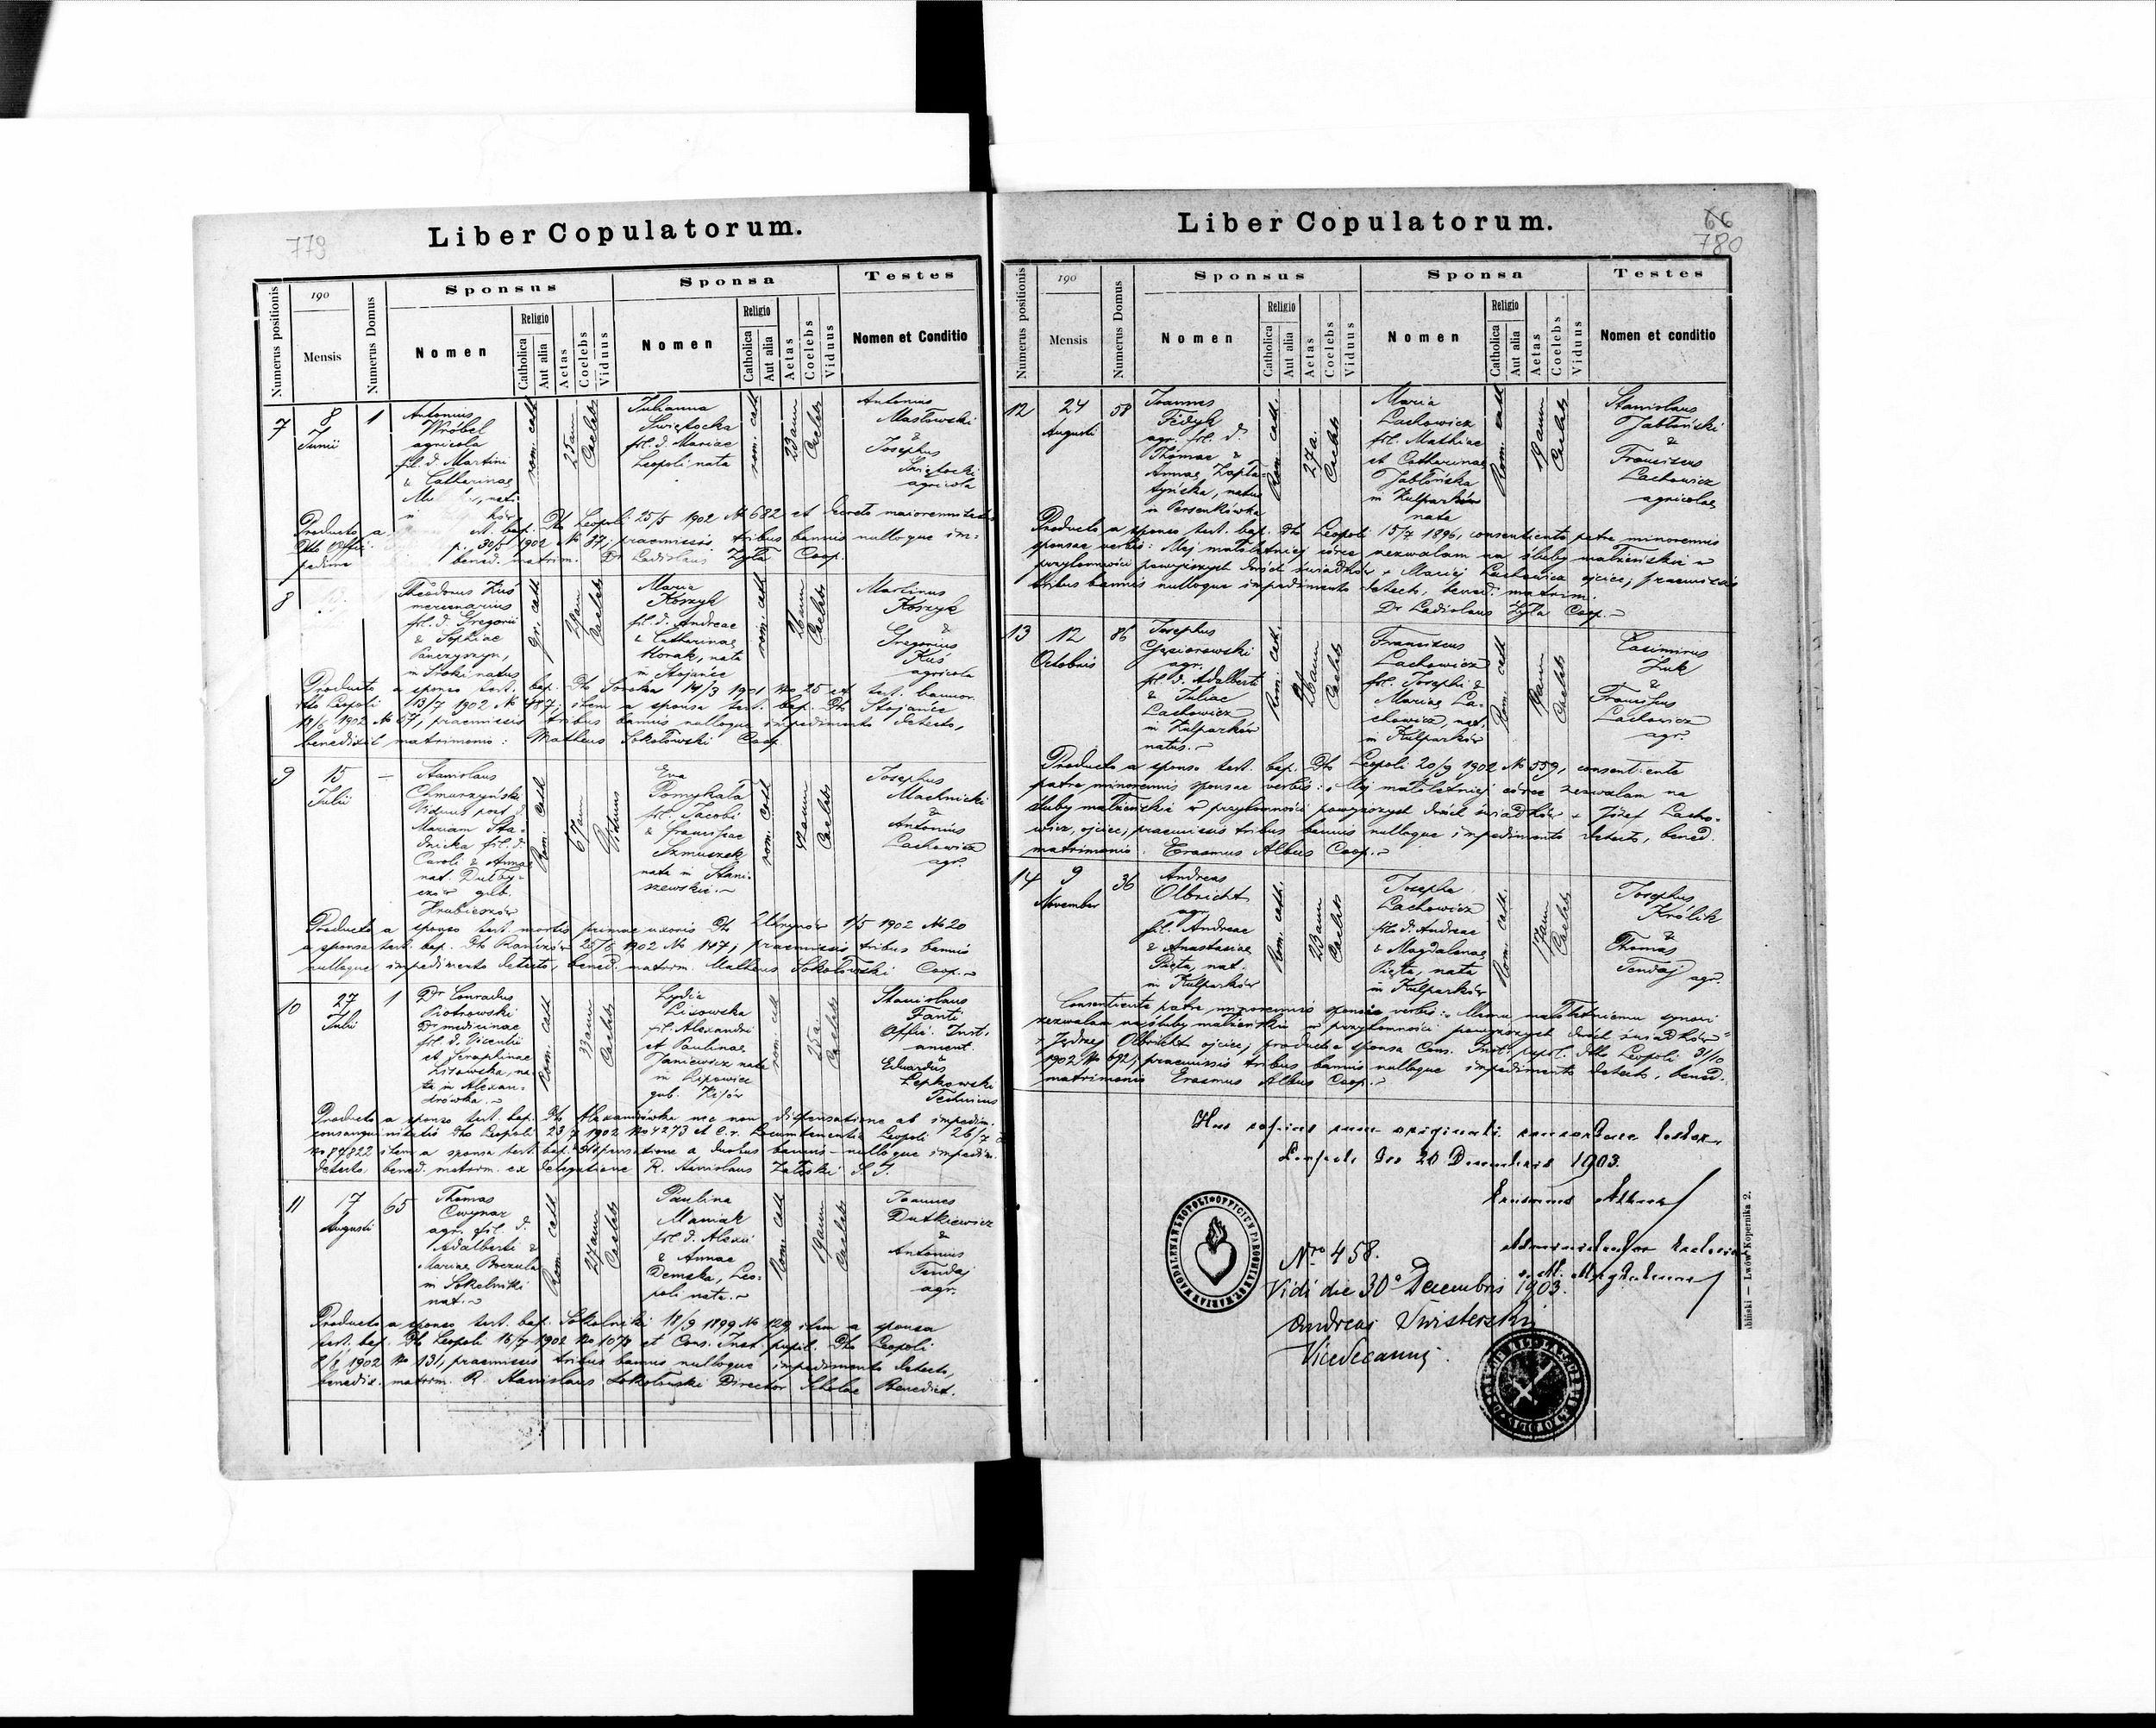 779
Liber Copulatorum.
Numerus positionis
190
Mensis
Numerus Domus
Sponsus
Nomen
Religio
Catholica
Aut alia
Aetas
Coelebs
Viduus
Sponsa
Nomen
Religio
Catholica
Aut alia
Aetas
Coelebs
Viduus
Testes
Nomen et Conditio
7
8
Junii
1
Antonius
Wróbel
agricola
fil. d. Martini
& Catharinae
rom. cath
25 ann
Caelebs
Julianna
Swiętocka
fil. d. Mariae
Leopoli nata
rom. cath
23 ann
Caelebs
Antonius
Masłowski
&
Josephus
Swiętocki
agricola
Producto a
bap. Dto Leopoli 25/5 1902 № 682 et decreto
30/5 1902 № 87; praemissis tribus bannis nulloque im-
pedim.
bened. matrim. Dr Ladislaus Zyła Coop.
8
Theodorus Kuś
mercenarius
fil. d. Gregorii
& Sophiae
Panczyszyn,
in Sroki natus
gr. cath
29 ann
Caelebs
Maria
Koszyk
fil. d. Andreae
& Catharinae
Horak, nata
in Stojańce
rom. cath
26 ann
Caelebs
Martinus
Koszyk
&
Gregorius
Kuś
agricola
Producto a sponso test. bap. Dto Soroka 14/3 1901 No 25 et test. bannor.
Dto Leopoli 13/7 1902 № 417; item a sponsa test. bap. Dto Stojańce
1902 № 67; praemissis tribus bannis nulloque impedimento detecto,
benedixit matrimonio: Matheus Sokołowski Coop.
9
15
Julii
—
Stanislaus
Chmurzyński
Viduus post d.
Mariam Sta-
dnicka fil. d.
Caroli & Annae
nat.
gub.
Hrubieszów
Rom. cath
67 ann
Viduus
Eva
Pomykała
fil. Jacobi
& Franciscae
Szmuszek
nata in Stani-
szewskie.
rom. cath
42 ann
Caelebs
Josephus
Machnicki
&
Antonius
Lachowicz
agr.
Producto a sponso test. mortis primae uxoris Dto Uhrynów 1/5 1902 № 20
a sponsa test. bap. Dto Raniżów 25/6 1902 № 147; praemissis tribus bannis
nulloque impedimento detecto, bened. matrim. Matheus Sokołowski Coop.
10
27
Julii
1
Dr Conradus
Piotrowski
Dr medicinae
fil. d. Vicentii
et Seraphinae
Lisowska, na-
ta in Alexan-
drówka.
Rom. cath
33 ann
Caelebs
Lydia
Lisowska
fil. Alexandri
et Paulinae
Janiewicz nata
in Lipowiec
gub. Kijów
rom. cath
25 a.
Caelebs
Stanislaus
Fanti
Offic. Inst.
&
Eduardus
Łepkowski
Technicus
Producto a sponso test. bap. Dto Alexandrówka nec non dispensatione ab impedim.
consanguinitatis Dto Leopoli 23/7 1902 No 4273 et C. r. Locumtenentia Leopoli 26/7
No 87822 item a sponsa test. bap. Dispensatione a duobus bannis nulloque impedim.
detecto bened. matrim. ex delegatione R. Stanislaus Załęski S. J.
11
17
Augusti
65
Thomas
Cwynar
agr. fil. d.
Adalberti &
Mariae Brezula
in Sokolniki
nat.
Rom. cath
27 ann
Caelebs
Paulina
Maniak
fil. d. Alexii
& Annae
Demska, Leo-
poli nata.
Rom. cath
19 ann
Caelebs
Joannes
Dutkiewicz
&
Antonius
Tendaj
agr.
Producto a sponso test. bap. Sokolniki 18/9 1899 № 129 item a sponsa
test. bap. Dto Leopoli 16/7 1902 No 1078 et Cons. Inst. pupil. Dto Leopoli
8/8 1902 No 131, praemissis tribus bannis nulloque impedimento detecto,
benedix. matrim. R. Stanislaus Sokołowski Director Scholae Benedict.
66
780
Liber Copulatorum.
Numerus positionis
190
Mensis
Numerus Domus
Sponsus
Nomen
Religio
Catholica
Aut alia
Aetas
Coelebs
Viduus
Sponsa
Nomen
Religio
Catholica
Aut alia
Aetas
Coelebs
Viduus
Testes
Nomen et conditio
12
24
Augusti
58
Joannes
Fedyk
agr. fil. d.
Thomae &
Annae Zapła-
tyńska, natus
in Persenkówka
Rom. cath.
27 a.
Caelebs
Maria
Lachowicz
fil. Mathiae
et Catharinae
Jabłońska
in Kulparków
nata
Rom. cath
19 ann
Caelebs
Stanislaus
Jabłoński
&
Franciscus
Lachowicz
agricolae
Producto a sponso test. bap. Dto Leopoli 15/7 1896, consentiente patre minorennis
sponsae verbis: Mej małoletniej córce zezwalam na śluby małżeńskie w
przytomności powyższych dwóch świadków + Maciej Lachowicz ojciec; praemissis
tribus bannis nulloque impedimento detecto, bened. matrim.
Dr Ladislaus Zyła Coop.
13
12
Octobris
86
Josephus
Gąsiorowski
agr.
fil. d. Adalberti
&
Juliae
Lachowicz
in Kulparków
natus.
Rom. cath.
26 ann
Caelebs
Francisca
Lachowicz
fil. Josephi &
Mariae La-
chowicz nat.
in Kulparków
Rom. cath
19 ann
Caelebs
Casimirus
Żuk
&
Franciscus
Lachowicz
agr.
Producto a sponso test. bap. Dto Leopoli 20/9 1902 № 559, consentiente
patre minorennis sponsae verbis: Mej małoletniej córce zezwalam na
śluby małżeńskie w przytomności powyższych dwóch świadków + Józef Lacho-
wicz, ojciec; praemissis tribus bannis nulloque impedimento detecto, bened.
matrimonio. Erasmus Albus Coop.
14
9
November
36
Andreas
Olbricht
agr.
fil. Andreae
& Anastasiae
Pięta, nat.
in Kulparków
Rom. cath.
23 ann
Caelebs
Josepha
Lachowicz
fil. d. Andreae
& Magdalenae
Pięta, nata
in Kulparków
Rom. cath.
17 ann
Caelebs
Josephus
Królik
&
Thomas
Tendaj agr.
Consentiente patre minorennis sponsi verbis: Memu małoletniemu synowi
zezwalam na śluby małżeńskie w przytomności powyższych dwóch świadków
+ Jędrzej Olbricht ojciec; producto a sponsa Cons. Inst. pupil. Dto Leopoli 31/10
1902 № 692; praemissis tribus bannis nulloque impedimento detecto, bened.
matrimonio Erasmus Albus Coop.
Has copias cum originali concordare testor
Leopoli die 20 Decembris 1903.
Erasmus Albus
Administrator Ecclesiae
s. M. Magdalenae
Nro 458.
Vidi die 30a Decembris 1903.
Andreas
Vicedecanus
Lwów Kopernika 2.